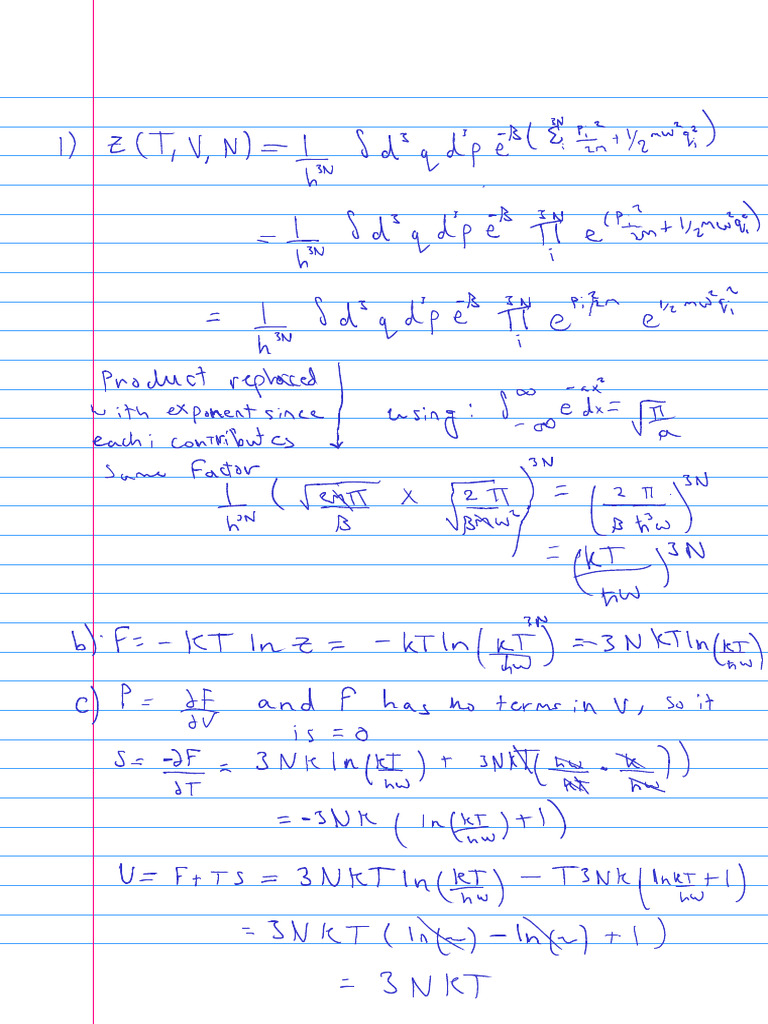 1) Z(T,V,N) = 1/h^3N ∫ d³q d³p e^-β(Σ_i^3N p_i²/2m + 1/2 mω²q_i²)
= 1/h^3N ∫ d³q d³p e^-β Π_i^3N e^(p_i²/2m + 1/2 mω²q_i²)
= 1/h^3N ∫ d³q d³p e^-β Π_i^3N e^p_i²/2m e^1/2 mω²q_i²
Product replaced
with exponent since
each i contributes
same factor
using: ∫_-∞^∞ e^-ax² dx = √(π/a)
1/h^3N (√(2mπ/β) × √(2π/βmω²))^3N = (2π/βħ³ω)^3N
= (kT/ħω)^3N
b) F = -kT ln Z = -kT ln(kT/ħω)^3N = -3NkT ln(kT/ħω)
c) P = ∂F/∂V and F has no terms in V, so it
is = 0
S = -∂F/∂T = 3Nk ln(kT/ħω) + 3NkT(ħω/kT · k/ħω))
= -3Nk (ln(kT/ħω) + 1)
U = F + TS = 3NkT ln(kT/ħω) - T3Nk(ln kT/ħω + 1)
= 3NkT (ln(~) - ln(~) + 1)
= 3NkT